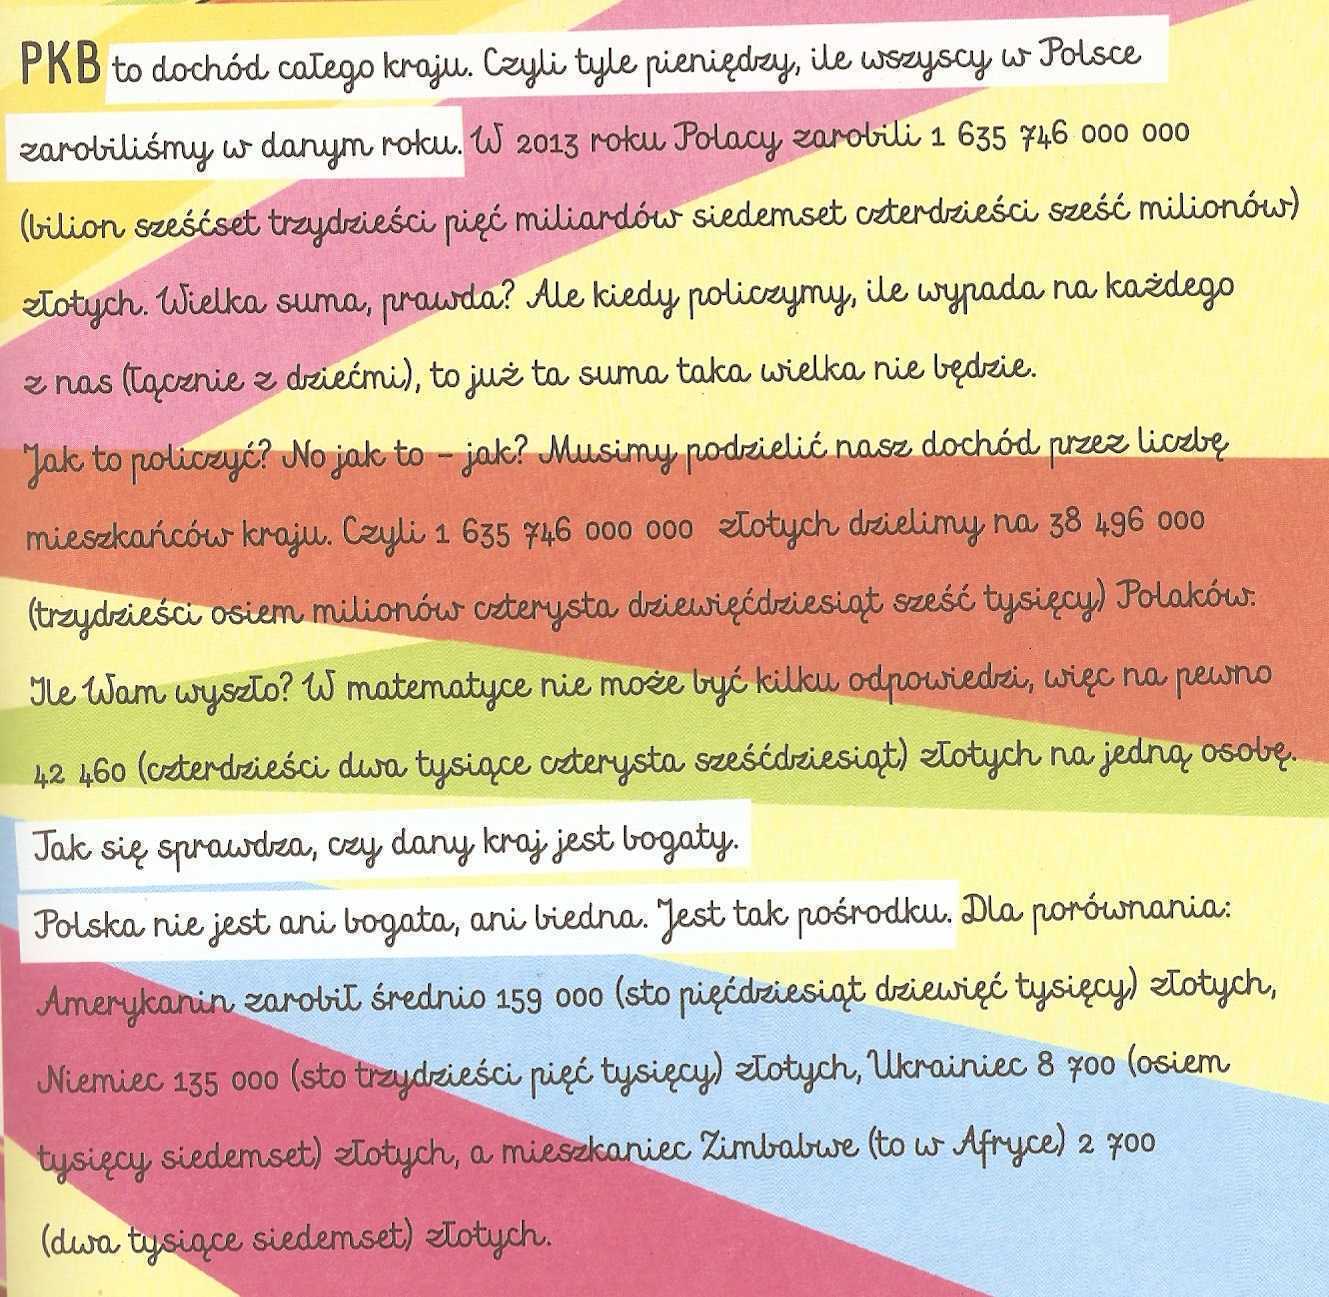 PKB to dochód całego kraju. Czyli tyle pieniędzy, ile wszyscy w Polsce
zarobiliśmy w danym roku. W 2013 roku Polacy zarobili 1 635 746 000 000
(bilion sześćset trzydzieści pięć miliardów siedemset czterdzieści sześć milionów)
złotych. Wielka suma, prawda? Ale kiedy policzymy, ile wypada na każdego
z nas (łącznie z dziećmi), to już ta suma taka wielka nie będzie.
Jak to policzyć? No jak to – jak? Musimy podzielić nasz dochód przez liczbę
mieszkańców kraju. Czyli 1 635 746 000 000 złotych dzielimy na 38 496 000
(trzydzieści osiem milionów czterysta dziewięćdziesiąt sześć tysięcy) Polaków.
Ile Wam wyszło? W matematyce nie może być kilku odpowiedzi, więc na pewno
42 460 (czterdzieści dwa tysiące czterysta sześćdziesiąt) złotych na jedną osobę.
Tak się sprawdza, czy dany kraj jest bogaty.
Polska nie jest ani bogata, ani biedna. Jest tak pośrodku. Dla porównania:
Amerykanin zarobił średnio 159 000 (sto pięćdziesiąt dziewięć tysięcy) złotych,
Niemiec 135 000 (sto trzydzieści pięć tysięcy) złotych, Ukrainiec 8 700 (osiem
tysięcy siedemset) złotych, a mieszkaniec Zimbabwe (to w Afryce) 2 700
(dwa tysiące siedemset) złotych.